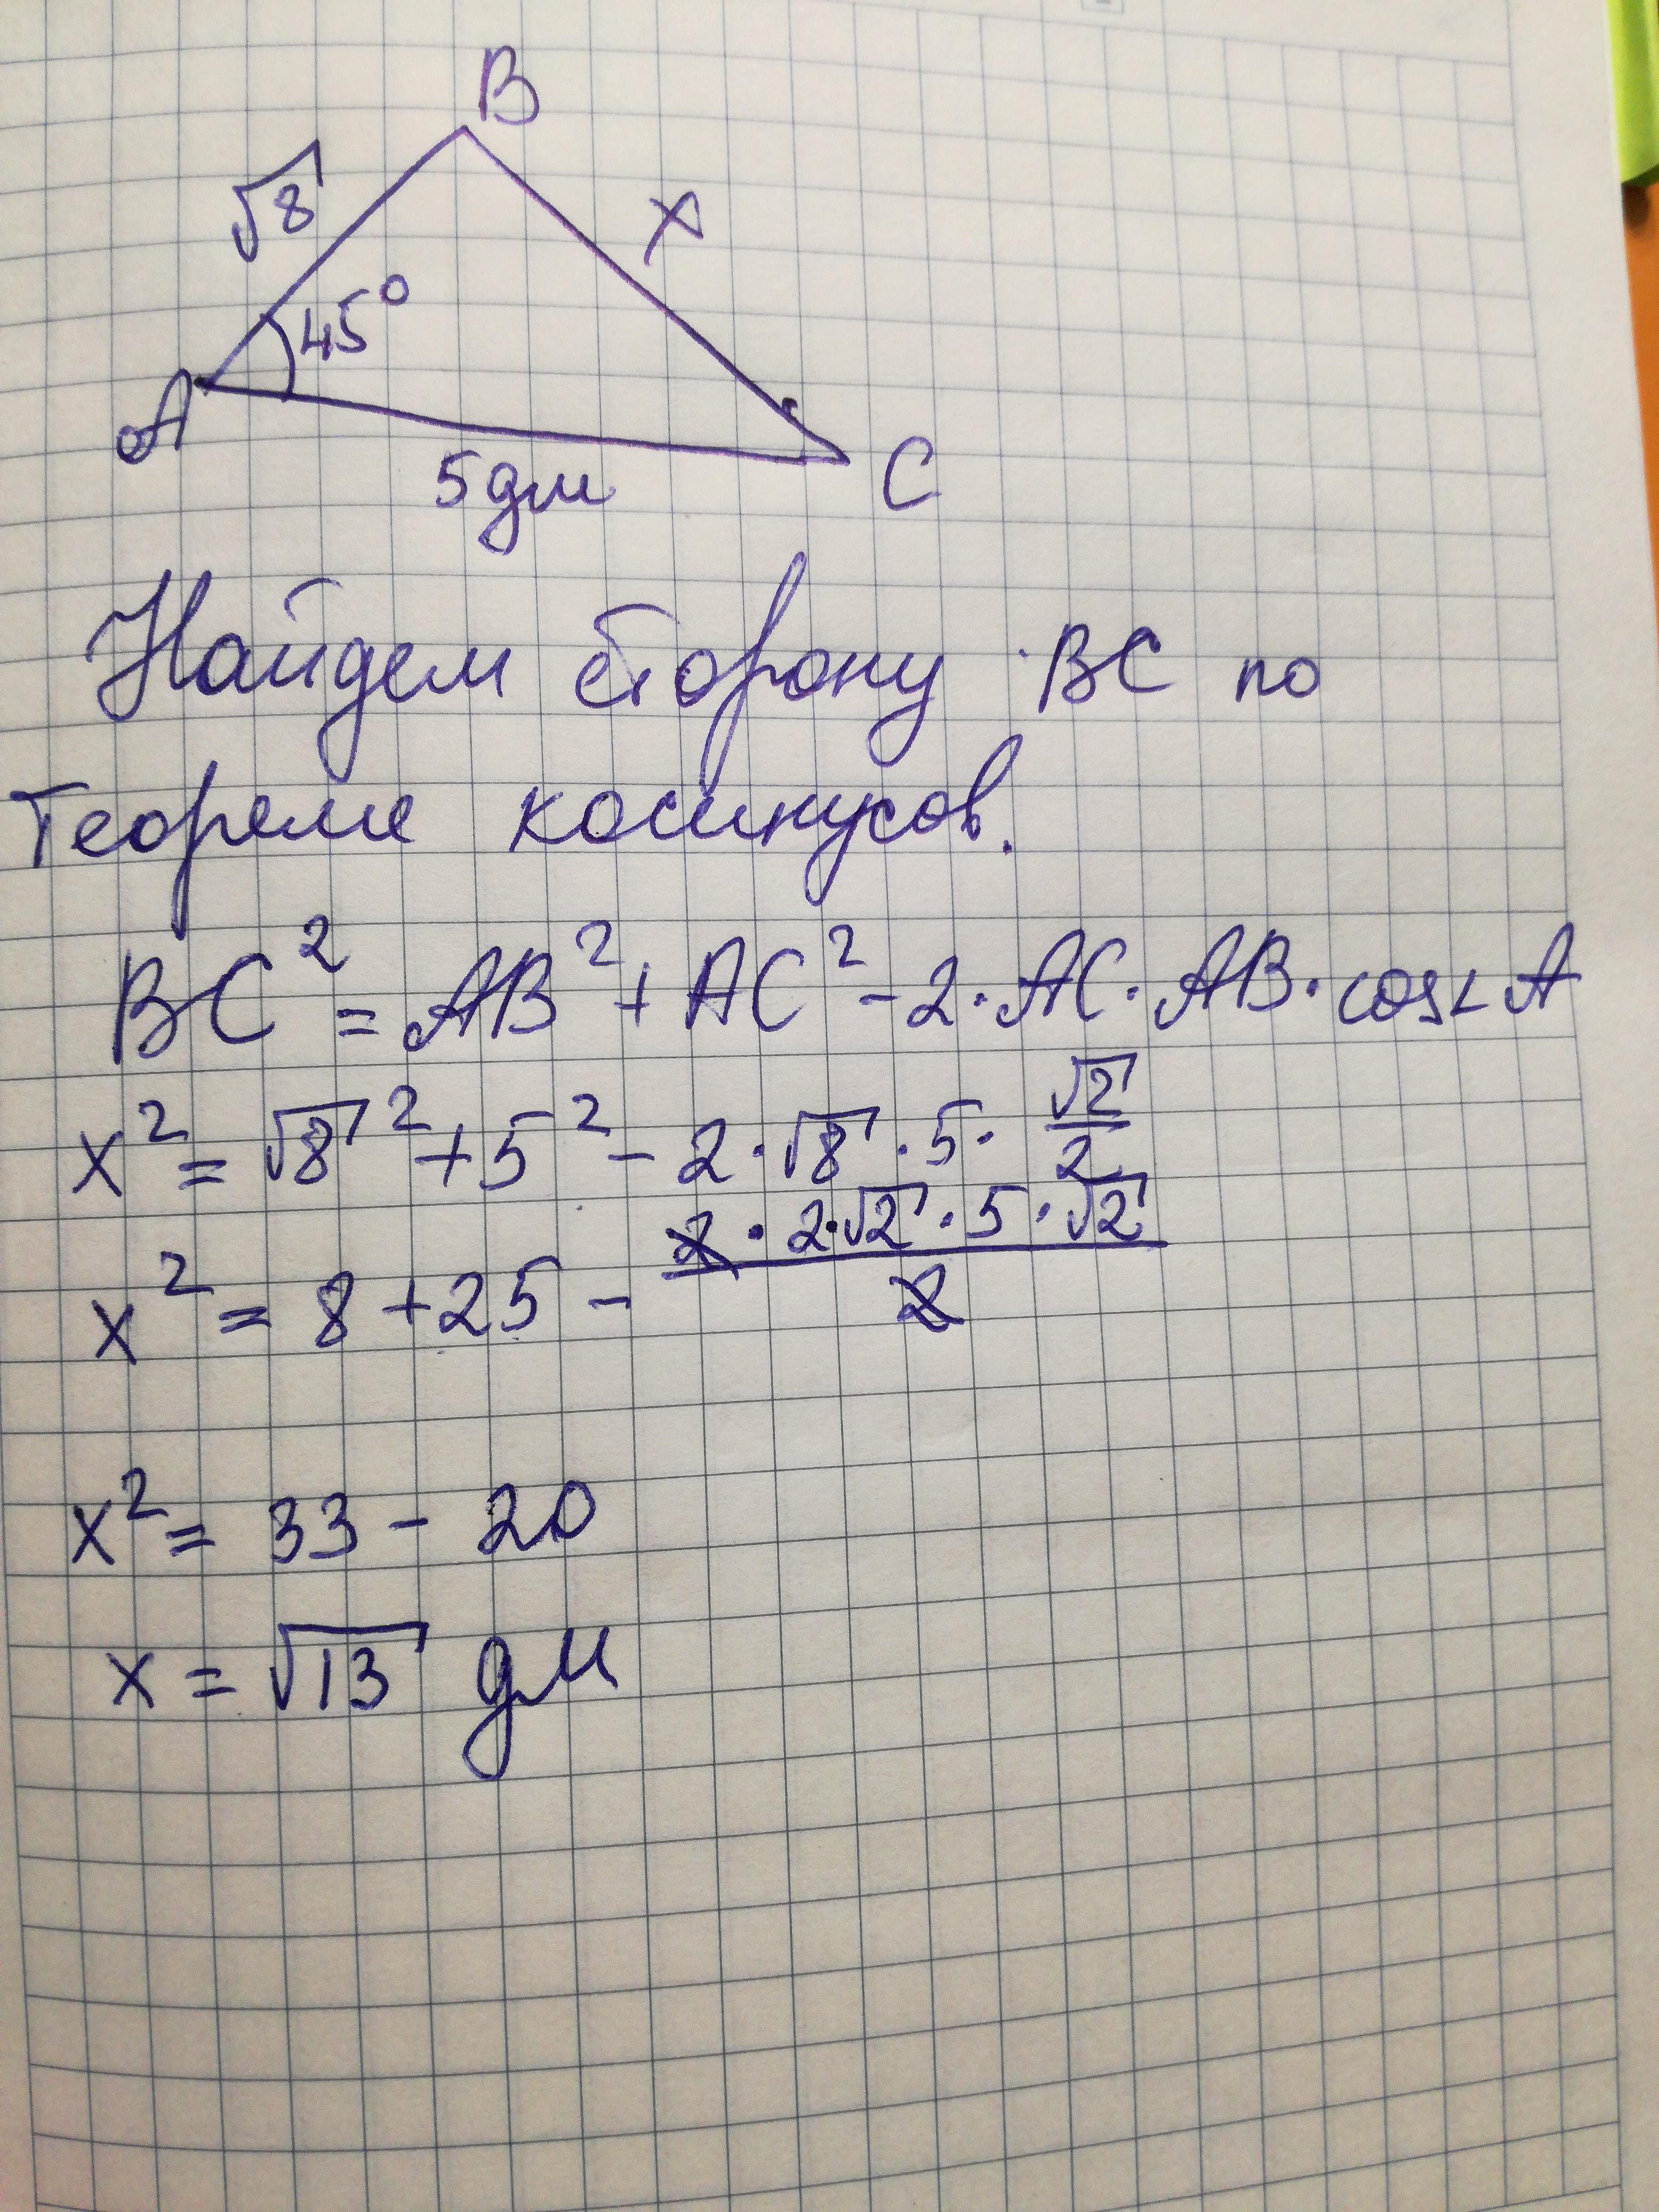 B
√8
x
45°
A
5дм
C
Найдем сторону BC по
теореме косинусов.
BC² = AB² + AC² - 2 · AC · AB · cos∠A
x² = √8² + 5² - 2 · √8 · 5 · √2/2
x² = 8 + 25 - (2 · 2·√2 · 5 · √2)/2
x² = 33 - 20
x = √13 дм